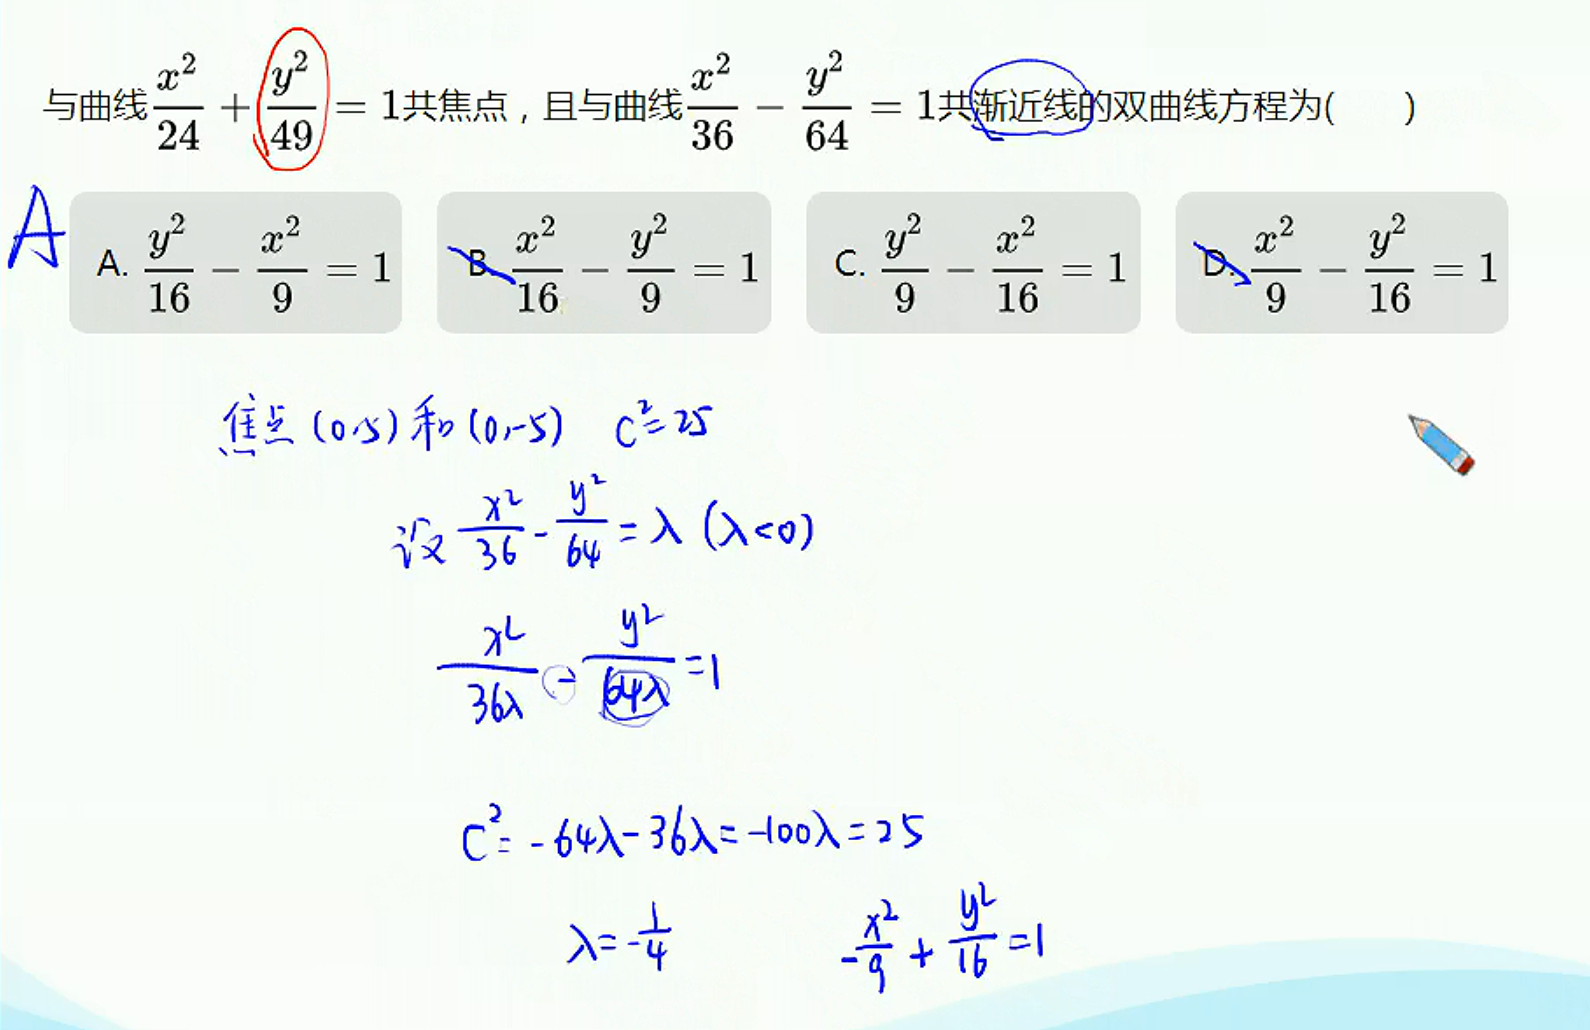 与曲线x²/24 + y²/49 = 1共焦点，且与曲线x²/36 − y²/64 = 1共渐近线的双曲线方程为(　　)
A A. y²/16 − x²/9 = 1 B. x²/16 − y²/9 = 1 C. y²/9 − x²/16 = 1 D. x²/9 − y²/16 = 1
焦点(0,5)和(0,-5) C²=25
设 x²/36 - y²/64 = λ (λ<0)
x²/36λ - y²/64λ = 1
C² = -64λ - 36λ = -100λ = 25
λ = -1/4 -x²/9 + y²/16 = 1